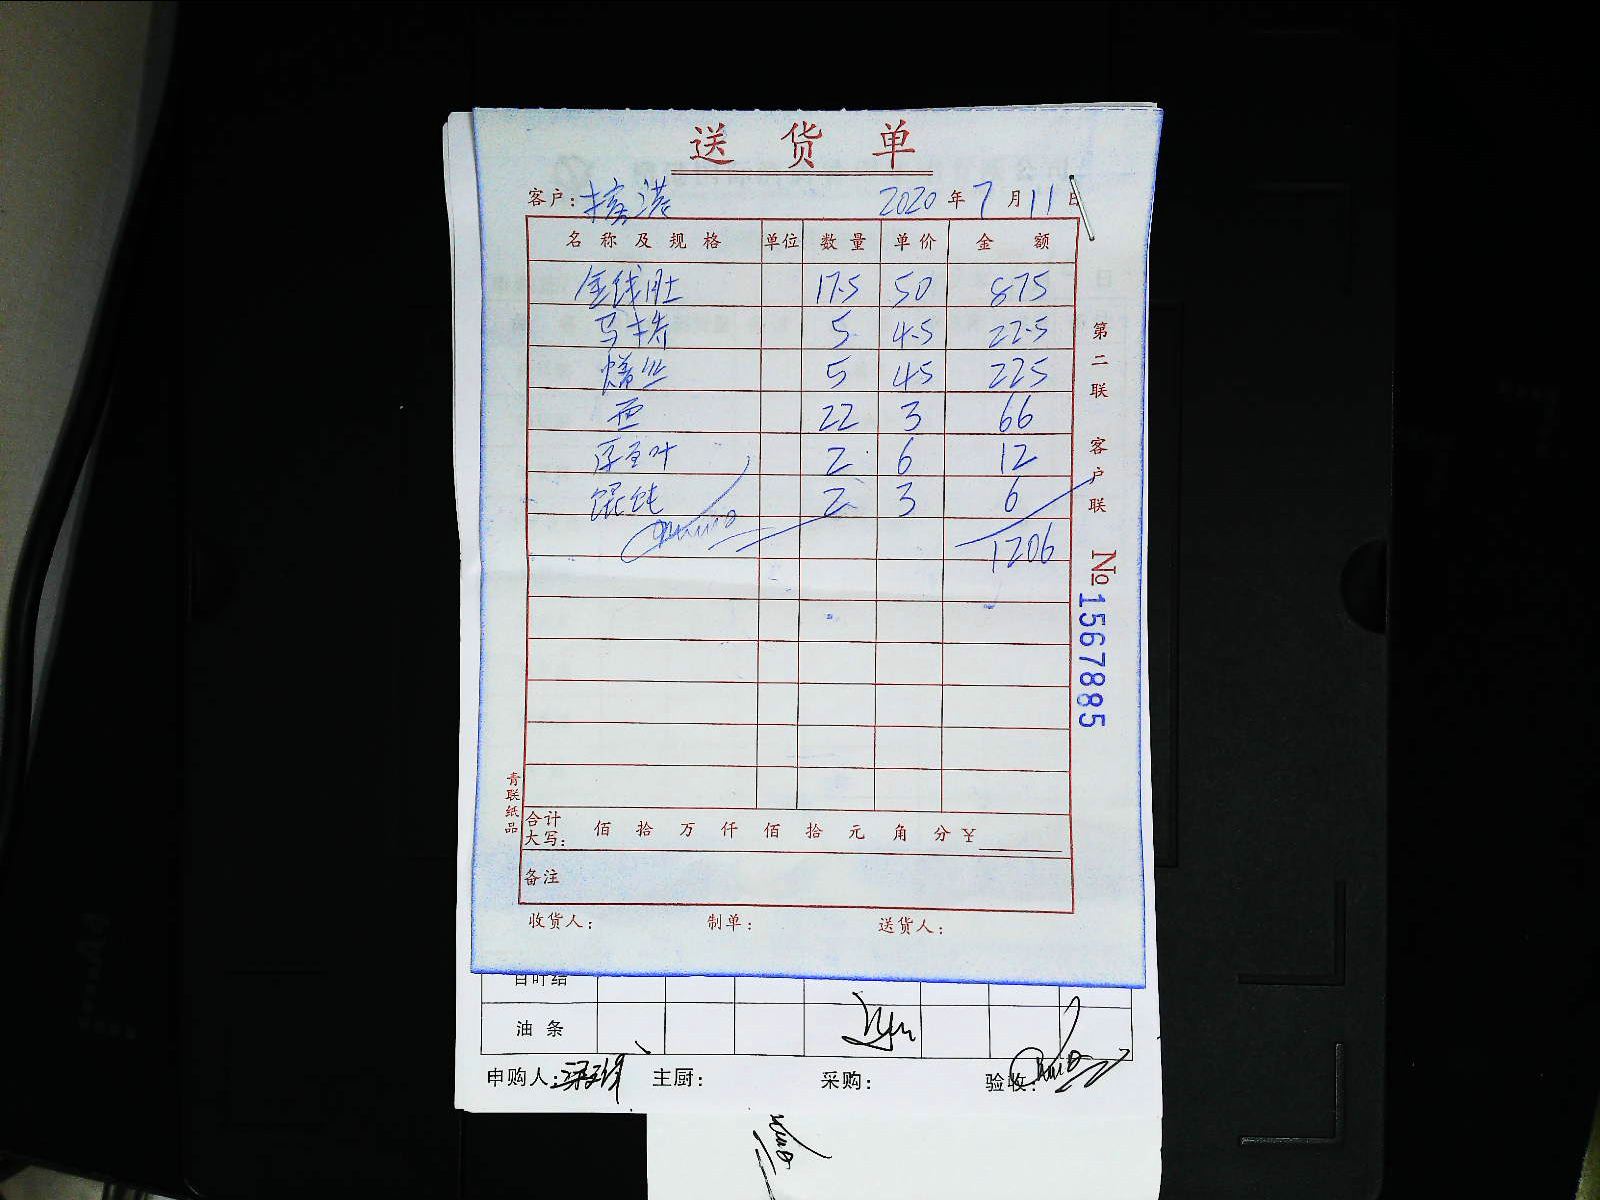 送货单
客户: 2020年7月11日
名称及规格 单位 数量 单价 金额
金钱肚 17.5 50 875
马蹄 5 4.5 22.5
鳝丝 5 45 225
面 22 3 66
厚百叶 2 6 12
馄饨 2 3 6
1206
合计大写: 佰 拾 万 仟 佰 拾 元 角 分 ¥
备注
收货人: 制单: 送货人:
第二联 客户联
№1567885
青联纸品
百叶结
油条
申购人: 主厨: 采购: 验收: